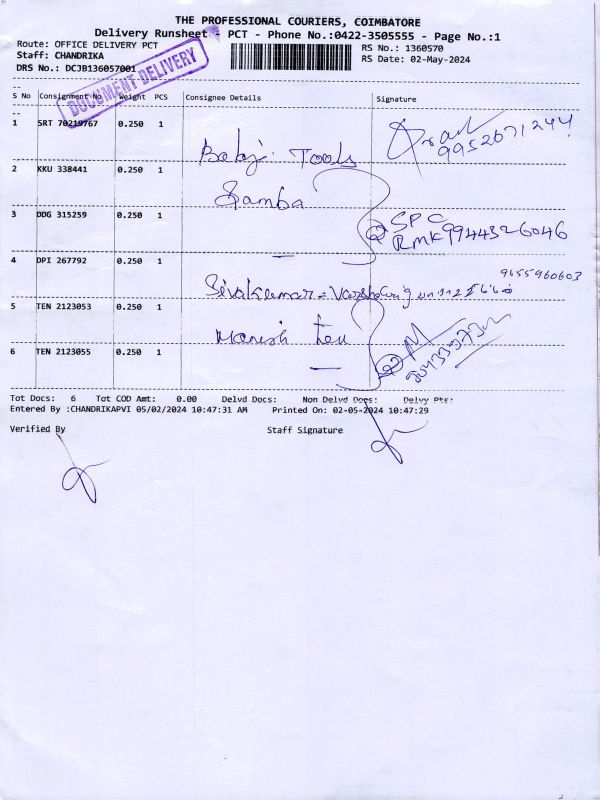 THE PROFESSIONAL COURIERS, COIMBATORE
Delivery Runsheet - PCT - Phone No.:0422-3505555 - Page No.:1
Route: OFFICE DELIVERY PCT
RS No.: 1360570
Staff: CHANDRIKA
RS Date: 02-May-2024
DRS No.: DCJB136057001
DOCUMENT DELIVERY
S No Consignment No Weight PCS Consignee Details Signature
1 SRT 70219767 0.250 1
9952671244
Balaji Tools
2 KKU 338441 0.250 1
Samba
3 DDG 315259 0.250 1
② SPC
RMK 9944326046
4 DPI 267792 0.250 1
9655960603
Sivakumar
5 TEN 2123053 0.250 1
Manish
6 TEN 2123055 0.250 1
Tot Docs: 6 Tot COD Amt: 0.00 Delvd Docs: Non Delvd Docs: Delvy Pts:
Entered By :CHANDRIKAPVI 05/02/2024 10:47:31 AM Printed On: 02-05-2024 10:47:29
Verified By Staff Signature